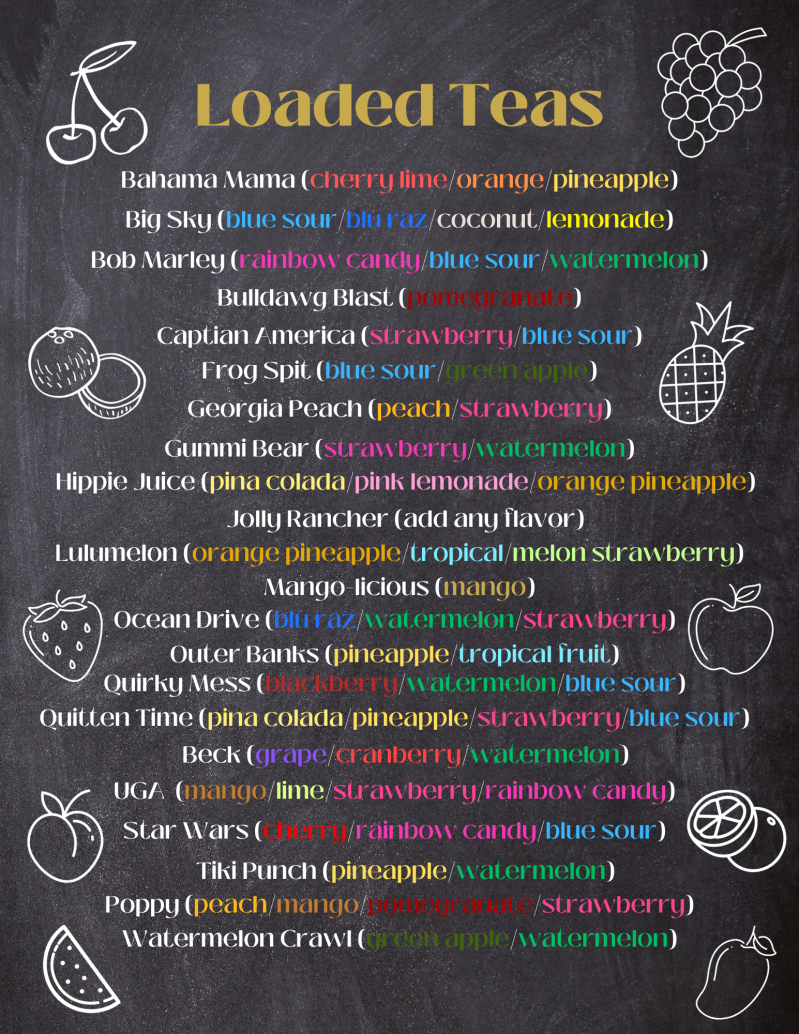 Loaded Teas
Bahama Mama (cherry lime/orange/pineapple)
Big Sky (blue sour/blu raz/coconut/lemonade)
Bob Marley (rainbow candy/blue sour/watermelon)
Bulldawg Blast (pomegranate)
Captian America (strawberry/blue sour)
Frog Spit (blue sour/green apple)
Georgia Peach (peach/strawberry)
Gummi Bear (strawberry/watermelon)
Hippie Juice (pina colada/pink lemonade/orange pineapple)
Jolly Rancher (add any flavor)
Lulumelon (orange pineapple/tropical/melon strawberry)
Mango-licious (mango)
Ocean Drive (blu raz/watermelon/strawberry)
Outer Banks (pineapple/tropical fruit)
Quirky Mess (blackberry/watermelon/blue sour)
Quitten Time (pina colada/pineapple/strawberry/blue sour)
Beck (grape/cranberry/watermelon)
UGA (mango/lime/strawberry/rainbow candy)
Star Wars (cherry/rainbow candy/blue sour)
Tiki Punch (pineapple/watermelon)
Poppy (peach/mango/pomegranate/strawberry)
Watermelon Crawl (green apple/watermelon)